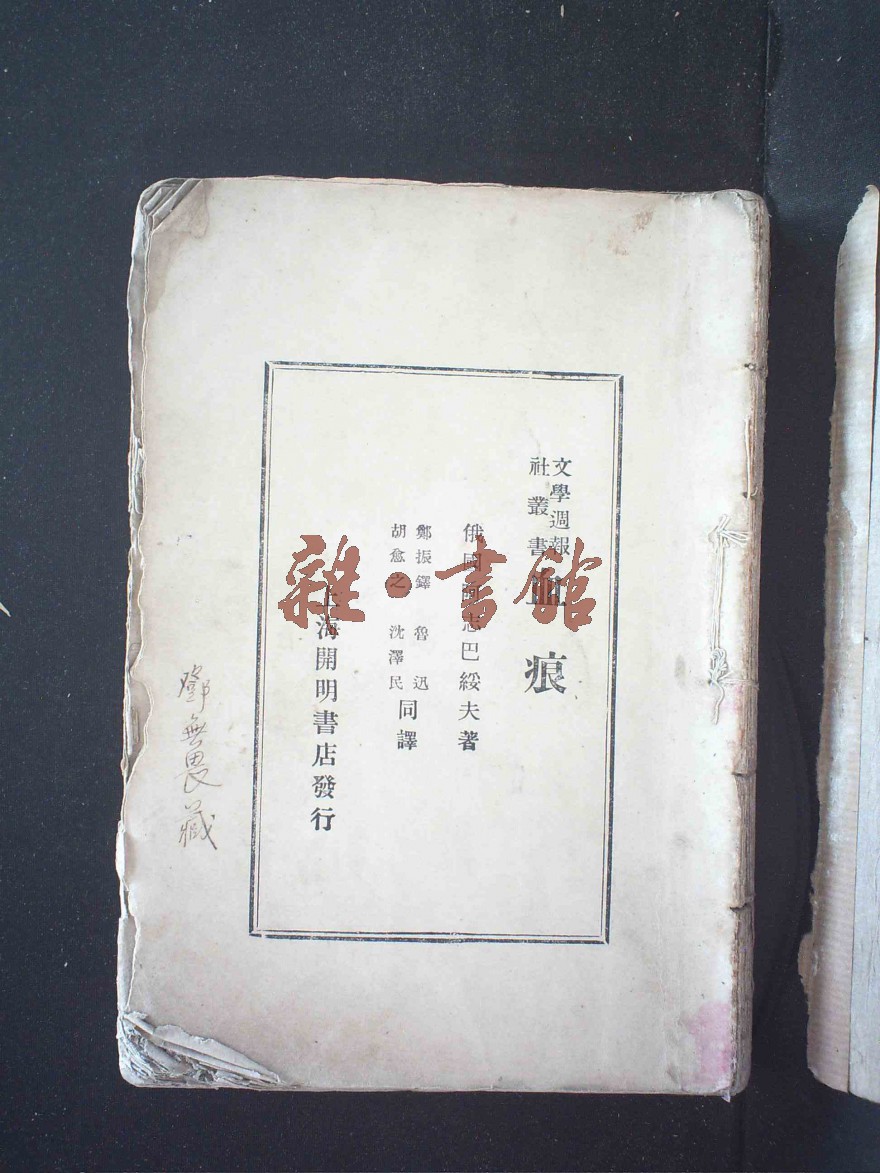 文學週報
社叢書
血痕
俄國阿志巴綏夫著
鄭振鐸 魯迅
胡愈之 沈澤民
同譯
上海開明書店發行
鄧無畏藏
雜·書館